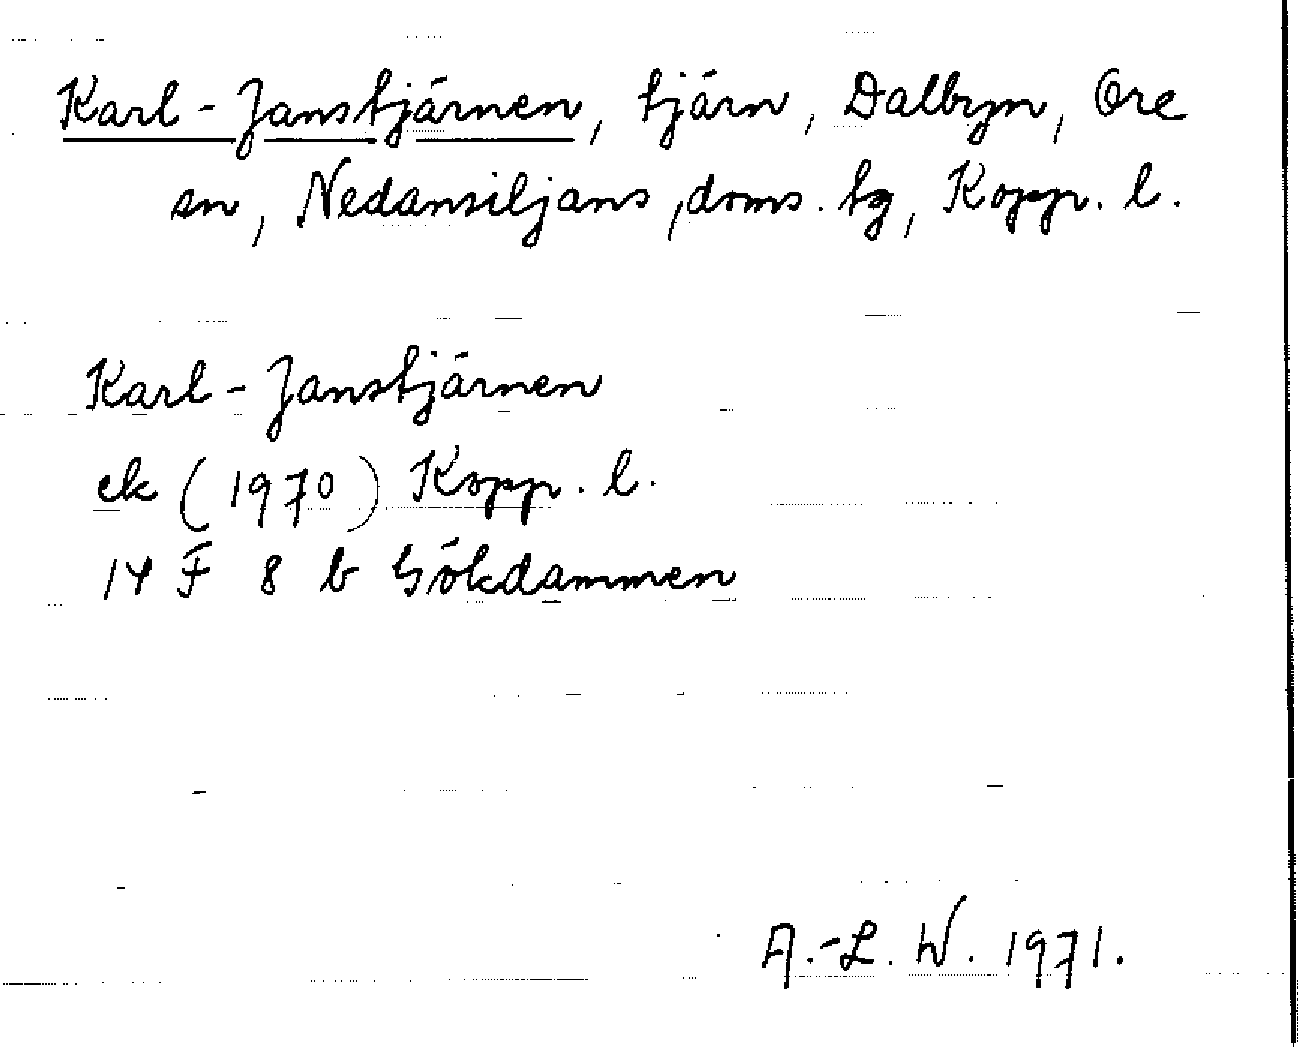 Karl-Janstjärnen, tjärn, Dalbyn, Ore
sn, Nedansiljans, doms. tg, Kopp. l.
Karl-Janstjärnen
ek (1970) Kopp. l.
14 F 8 b Gökdammen
A.-L. W. 1971.